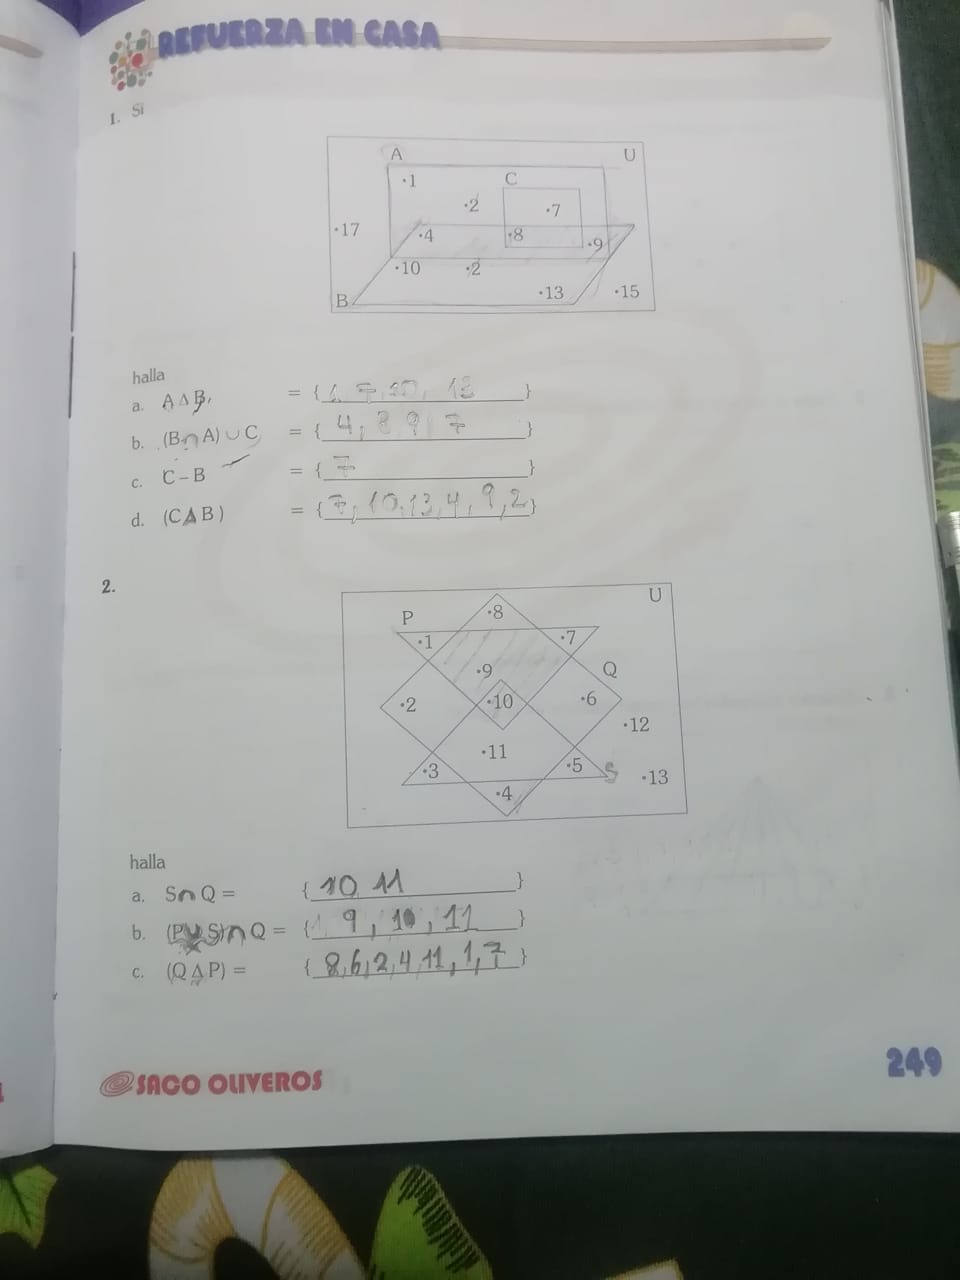 REFUERZA EN CASA
1. Si
A
U
·1
C
·2
·7
·17
·4
·8
·9
·10
·2
B
·13
·15
halla
a. A Δ B = { 1, 7, 10, 13 }
b. (B∩A) ∪ C = { 4, 8, 9, 7 }
c. C – B = { 7 }
d. (C Δ B) = { 7, 10, 13, 4, 9, 2 }
2.
U
P
·8
·1
·7
·9
Q
·2
·10
·6
·12
·11
·3
·5
S
·13
·4
halla
a. S∩Q = { 10 11 }
b. (P S)∩Q = { 9, 10, 11 }
c. (Q Δ P) = { 8,6,2,4,11,1,7 }
SACO OLIVEROS
249